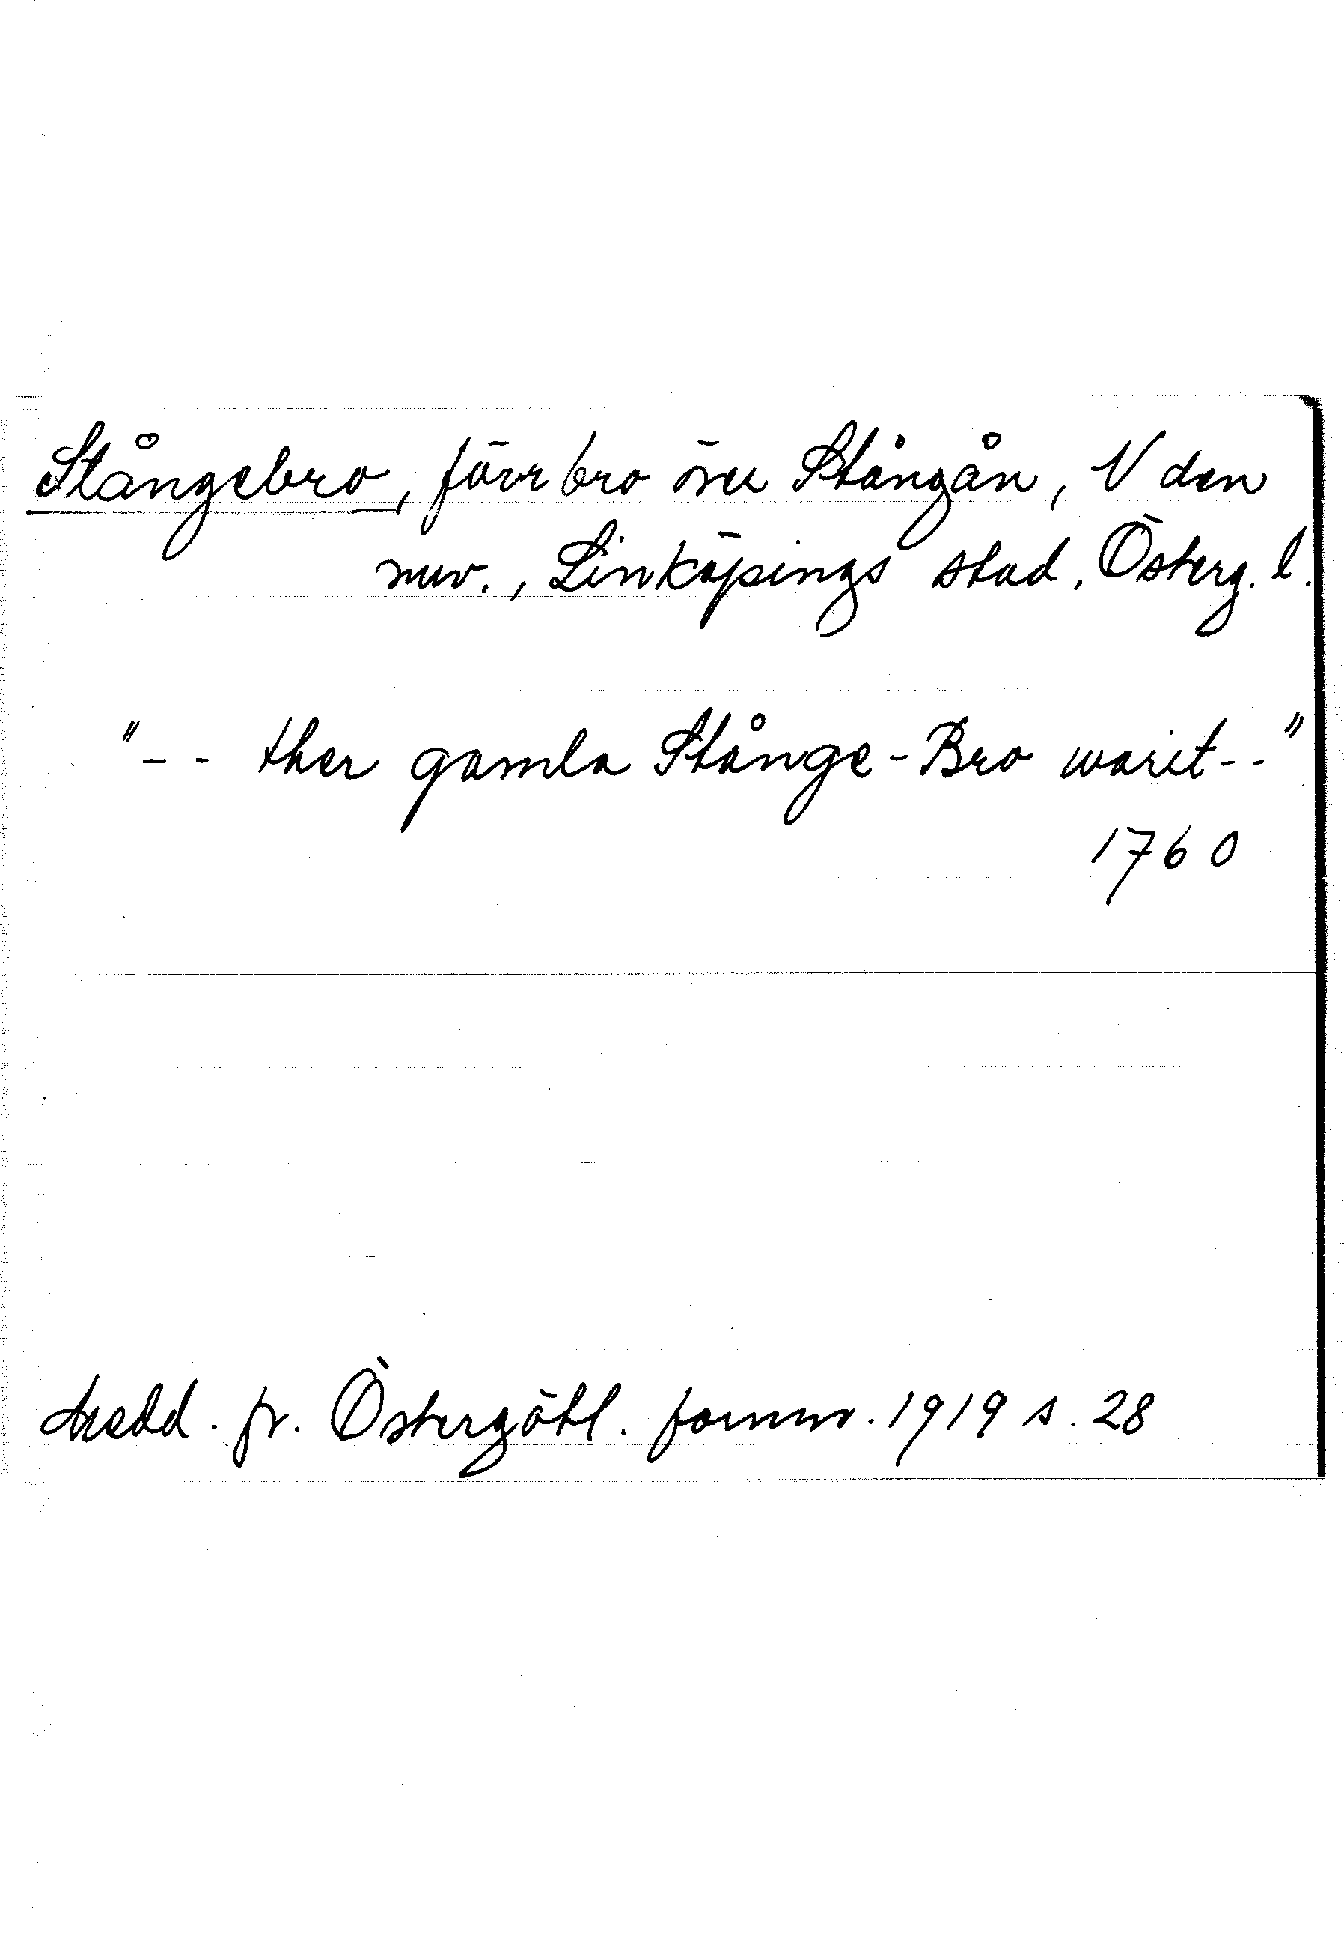 Stångebro, förr bro över Stångån, N den
nuv., Linköpings stad, Österg. l.
"-- ther gamla Stånge-Bro warit--"
1760
Medd. fr. Östergötl. fornm. 1919 s. 28